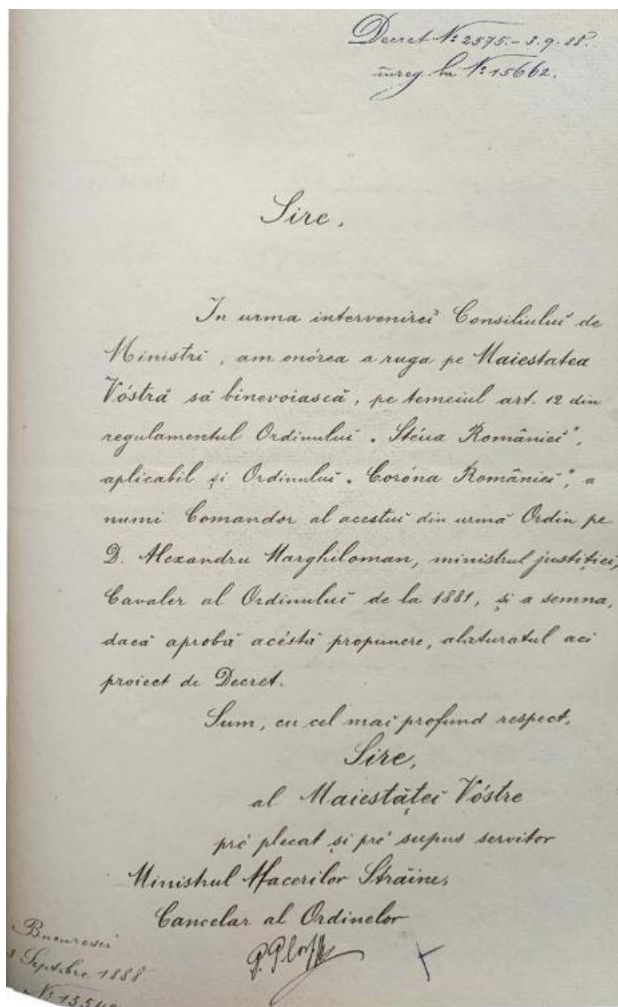 Decret Nº 2575.- 3.9.88.
înreg. la Nº 15662.
Sire,
In urma intervenirei Consiliuluĭ de
Miniștri, am onórea a ruga pe Maiestatea
Vóstră să binevoiască, pe temeiul art. 12 din
regulamentul Ordinuluĭ „Steua Românieĭ",
aplicabil și Ordinuluĭ „Coróna Românieĭ", a
numi Comandor al acestuĭ din urmă Ordin pe
D. Alexandru Marghiloman, ministrul justițieĭ,
Cavaler al Ordinuluĭ de la 1881, și a semna,
dacă aprobă acéstă propunere, alăturatul aci
proiect de Decret.
Sum, cu cel mai profund respect,
Sire,
al Maiestățeĭ Vóstre
pré plecat și pré supus servitor
Ministrul Afacerilor Străine,
Cancelar al Ordinelor
Bucuresci
3 Septbre 1888